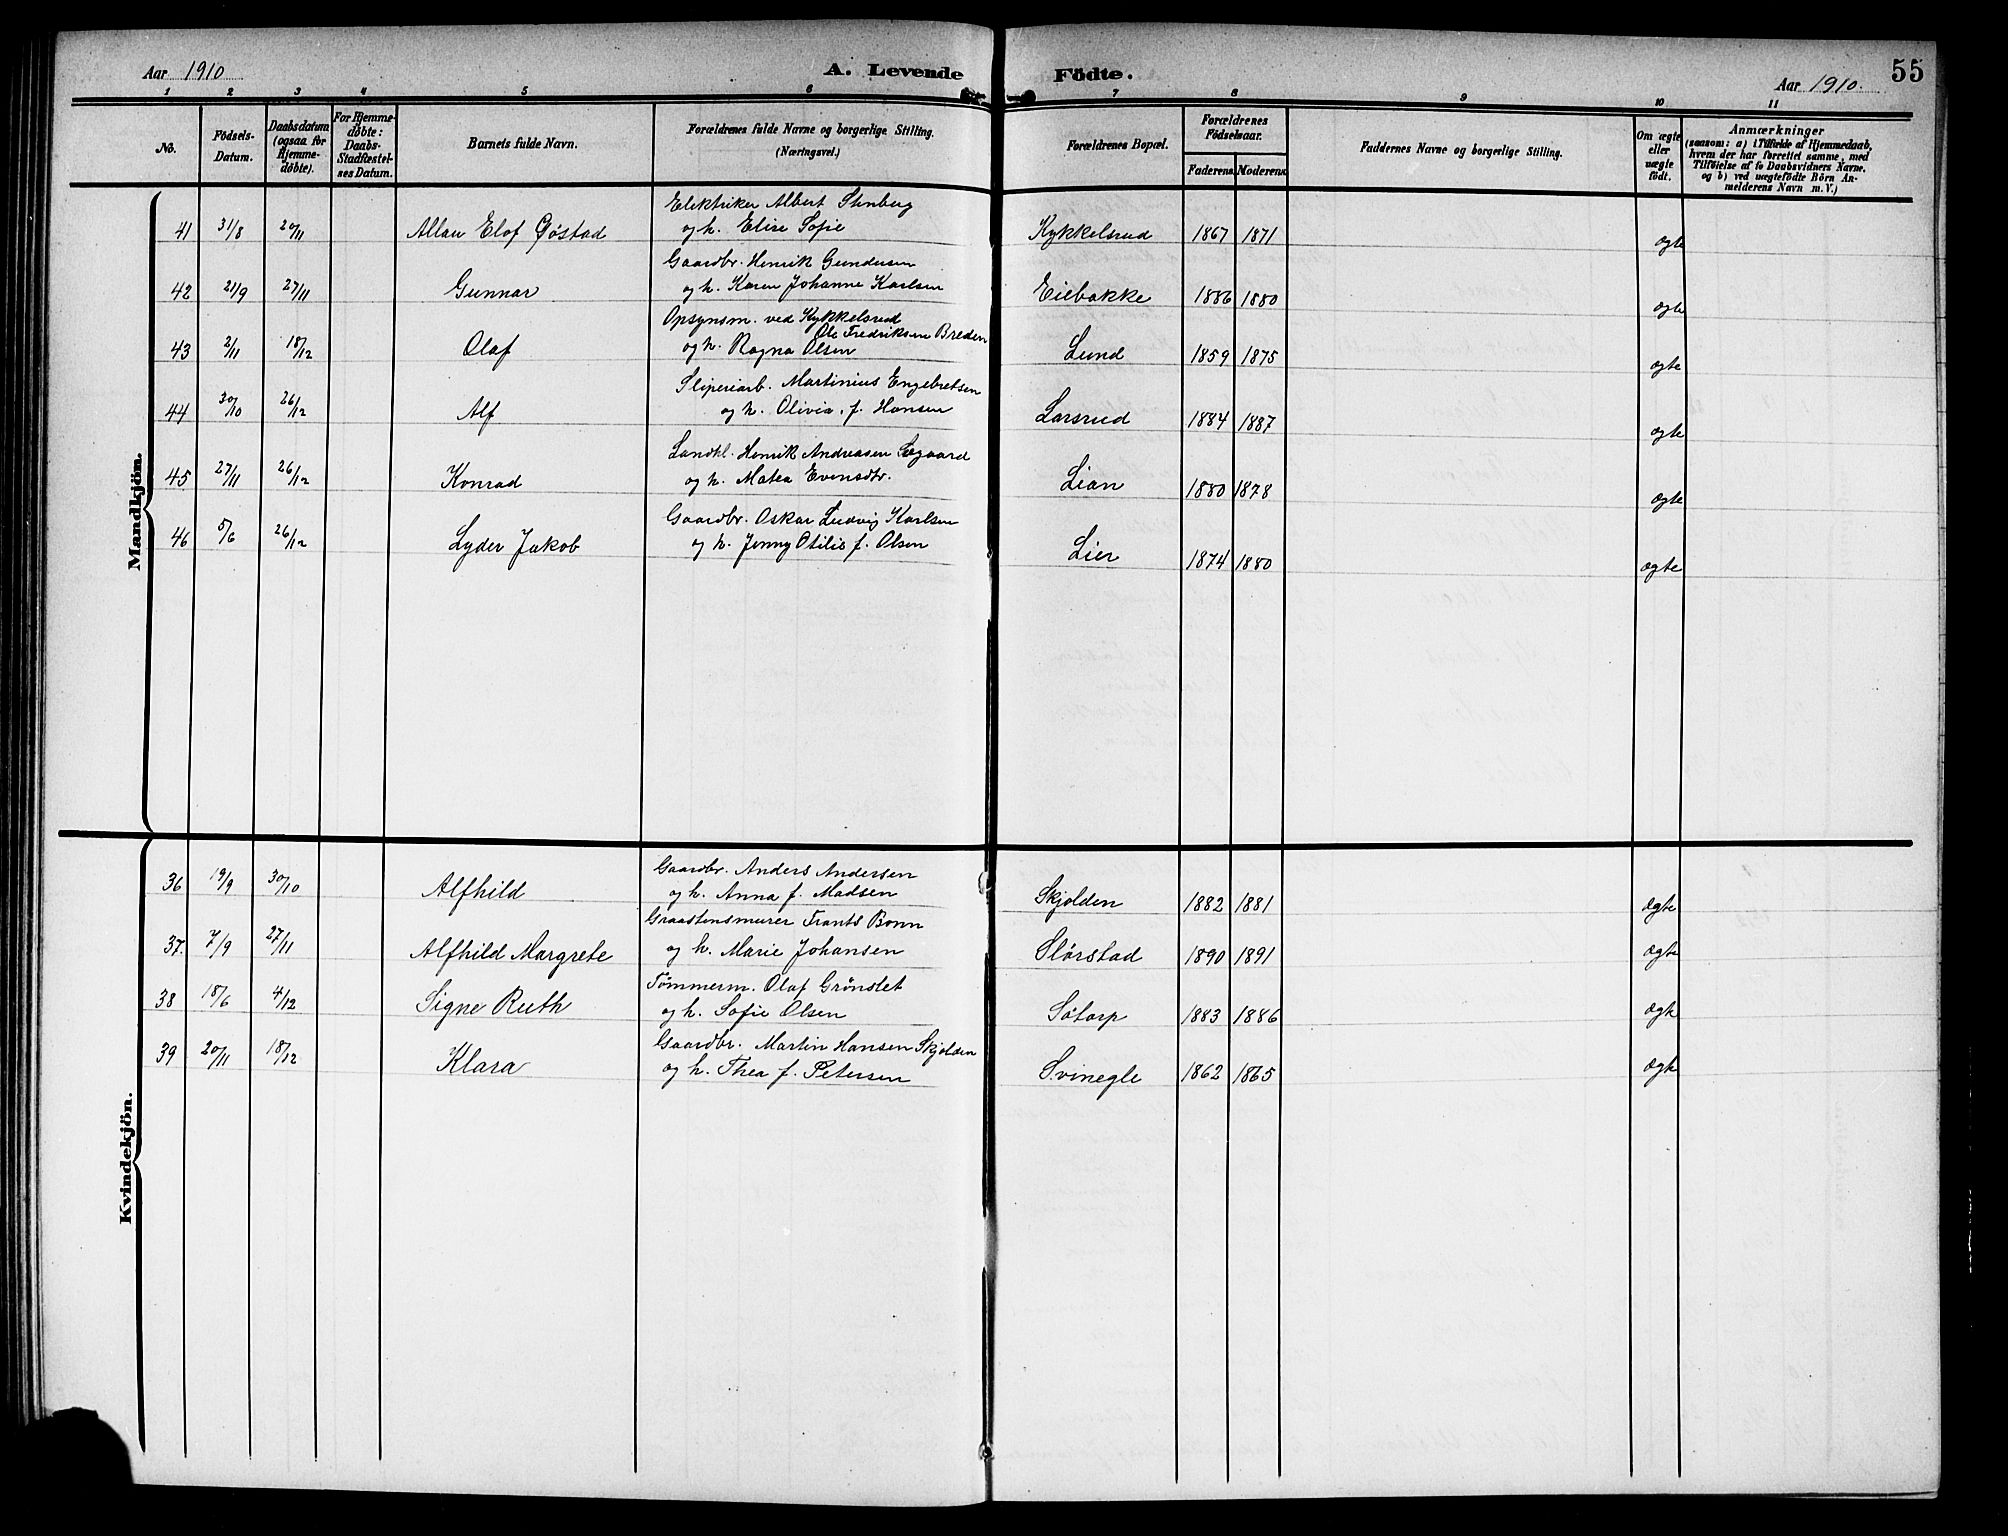 Aar 1910
A. Levende Födte.
Aar 1910.
55
1 2 3 4 5 6 7 8 9 10 11
No.
Födsels-Datum.
Daabsdatum (ogsaa for Hjemmedøbte).
For Hjemmedøbte: Daabs-Stadfæstelses Datum.
Barnets fulde Navn.
Forældrenes fulde Navne og borgerlige Stilling. (Næringsvei.)
Forældrenes Bopæl.
Forældrenes Födselsaar.
Faderens Moderens
Faddernes Navne og borgerlige Stilling.
Om ægte eller uægte født.
Anmærkninger
(saasom: a) i Tilfælde af Hjemmedaab, hvem der har forrettet samme, med Tilföielse af to Daabsvidners Navne, og b) ved uægtefödte Börn Anmelderens Navn m. V.)
Mandkjön.
Elektriker Albert Stenberg
41 31/8 20/11 Allan Elof Gøstad og h. Elise Sofie Kykkelsrud 1867 1871 ægte
Gaardbr. Henrik Gundersen
42 21/9 27/11 Gunnar og h. Karen Johanne Karlsen Eiebakke 1886 1880 ægte
Opsynsm. ved Kykkelsrud
Ole Fredriksen Breden
43 2/11 18/12 Olaf og h. Ragna Olsen Lund 1859 1875 ægte
Sliperiarb. Martinius Engebretsen
44 30/10 26/12 Alf og h. Olivia f. Hansen Larsrud 1884 1887 ægte
Landhl. Henrik Andreasen Søgaard
45 27/11 26/12 Konrad og h. Matea Evensdtr. Lian 1880 1878 ægte
Gaardbr. Oskar Ludvig Karlsen
46 5/6 26/12 Lyder Jakob og h. Jenny Otilie f. Olsen Lier 1874 1880 ægte
Kvindekjön.
Gaardbr. Anders Andersen
36 19/9 30/10 Alfhild og h. Anna f. Madsen Skjolden 1882 1881 ægte
Graastensmurer Frants Bonn
37. 7/9 27/11 Alfhild Margrete og h. Marie Johansen Slørstad 1890 1891 ægte
Tømmerm. Olaf Grønslet
38 18/6 4/12 Signe Ruth og h. Sofie Olsen Søtorp 1883 1886 ægte
Gaardbr. Martin Hansen Skjolden
39 20/11 18/12 Klara og h. Thea f. Petersen Svinegle 1862 1865 ægte